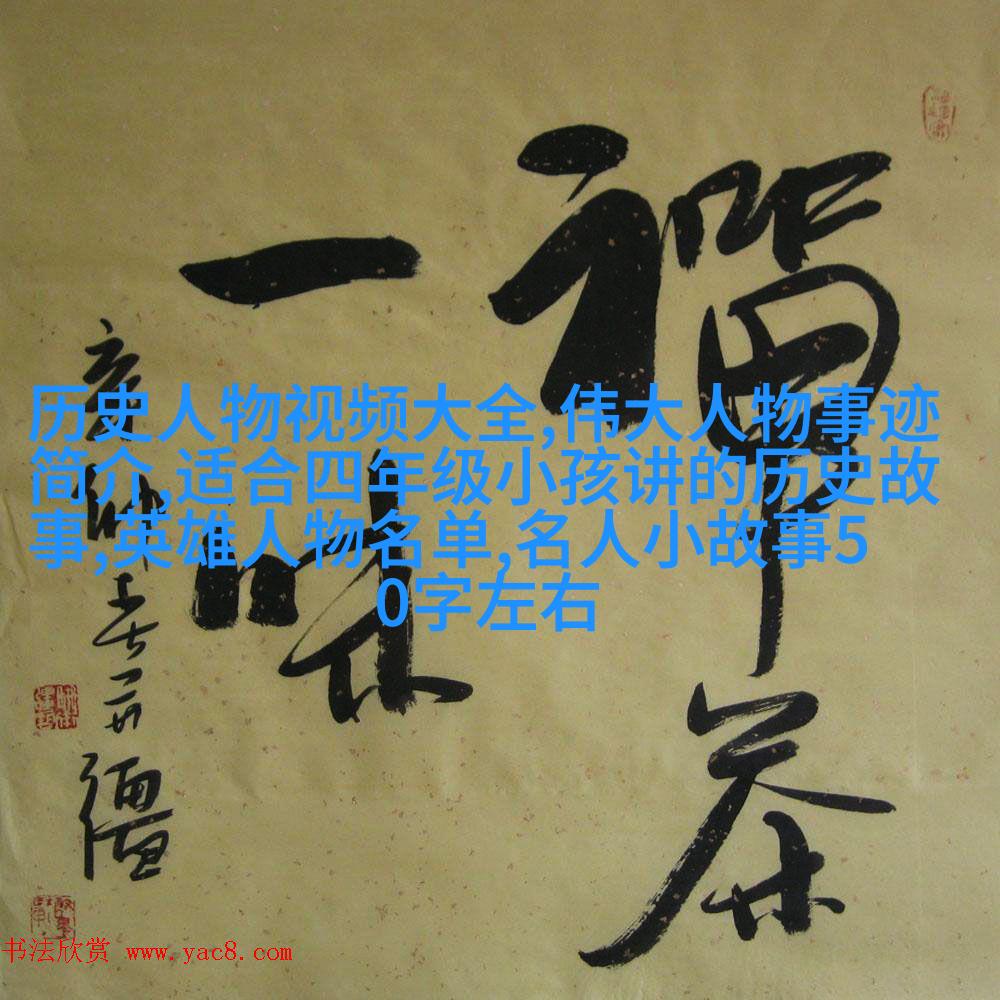 禅茶
一味
历史人物视频大全,伟大人物事迹
简介,适合四年级小孩讲的历史故
事,英雄人物名单,名人小故事5
0字左右
书法欣赏 www.yac8.com